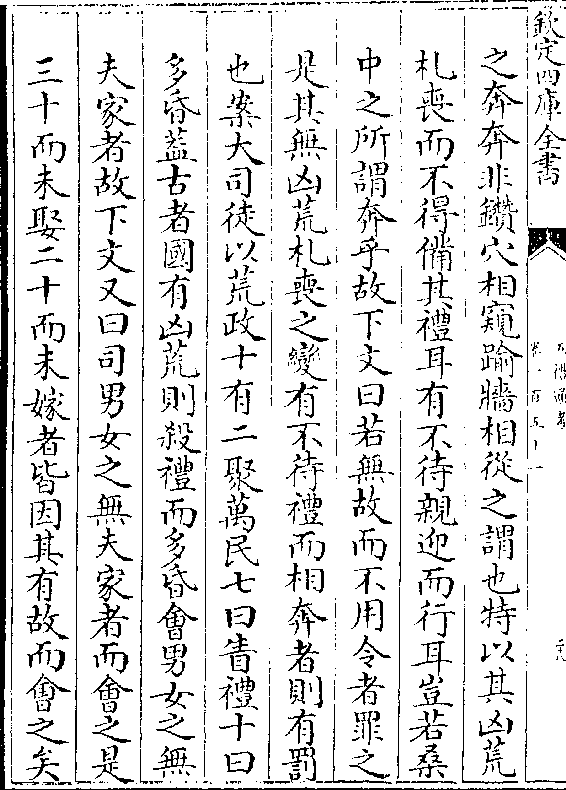 欽定四庫全書
五禮通考
卷一百五十一
之奔奔非鑽穴相窺踰牆相從之謂也特以其凶荒
札喪而不得備其禮耳有不待親迎而行耳豈若桑
中之所謂奔乎故下文曰若無故而不用令者罪之
是其無凶荒札喪之變有不待禮而相奔者則有罰
也案大司徒以荒政十有二聚萬民七曰眚禮十曰
多昏葢古者國有凶荒則殺禮而多昏會男女之無
夫家者故下文又曰司男女之無夫家者而會之是
三十而未娶二十而未嫁者皆因其有故而會之矣